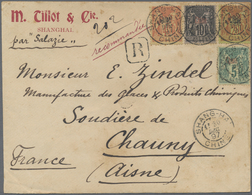 M. Tillot & Cie.
SHANGHAI
par "Salazie"
202
recommandée
R
Monsieur E. Zindel
Manufacture des glaces & Produits chimiques
Soudière de
Chauny
(Aisne)
France
SHANG-HAI
CHINE
5